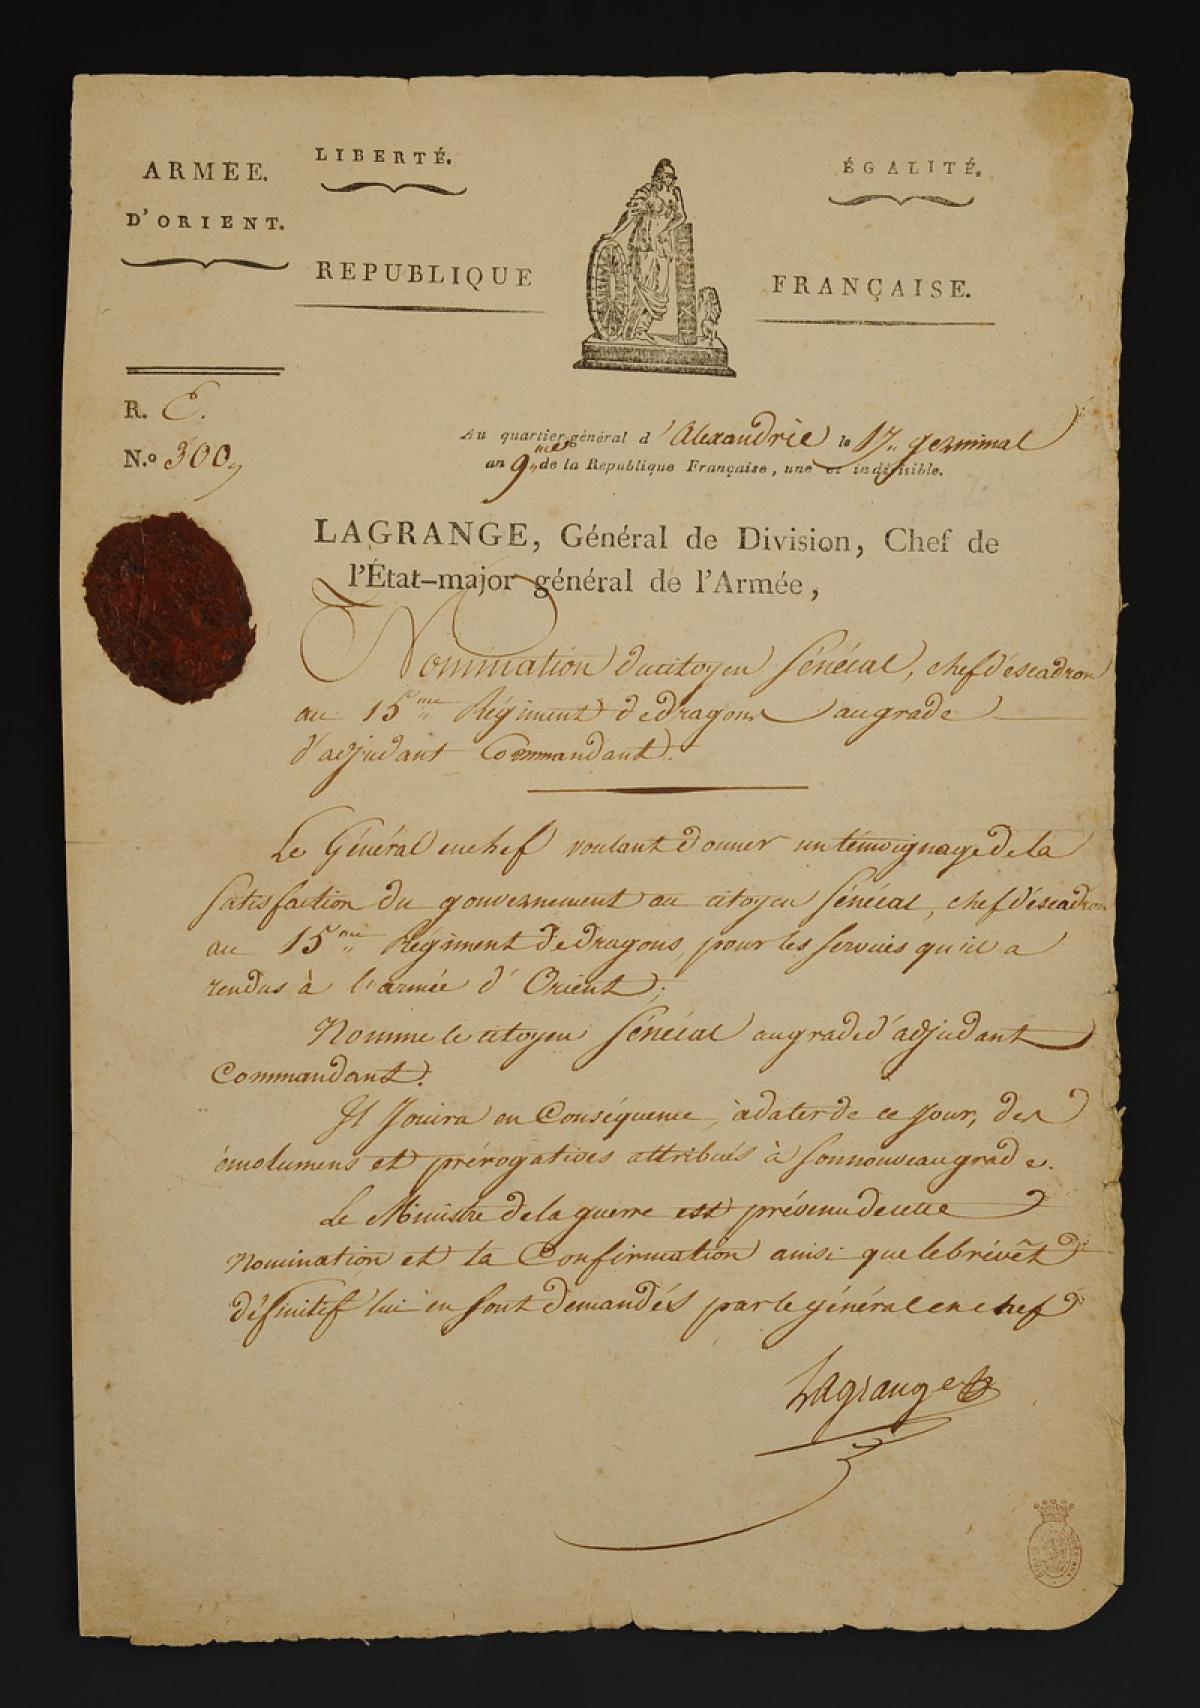 ARMÉE.
D'ORIENT.
LIBERTÉ.
ÉGALITÉ.
REPUBLIQUE FRANÇAISE.
R. E.
N.º 300
Au quartier général d'Alexandrie le 17 germinal
an 9me de la Republique Française, une et indivisible.
LAGRANGE, Général de Division, Chef de
l'État-major général de l'Armée,
Nomination du citoyen Sénécal, chef d'éscadron
au 15me Régiment de dragons au grade
d'adjudant Commandant.
Le Général en chef voulant donner un témoignage de la
satisfaction du gouvernement au citoyen Sénécal, chef d'éscadron
au 15me Régiment de dragons, pour les services qu'il a
rendus à l'armée d'Orient;
Nomme le citoyen Sénécal au grade d'adjudant
Commandant.
Il Jouira en Conséquence, à dater de ce Jour, des
émolumens et prérogatives attribués à son nouveau grade.
Le Ministre de la guerre est prévenu de cette
Nomination et la Confirmation ainsi que le brévêt
définitif lui en sont demandés par le général en chef
Lagrange